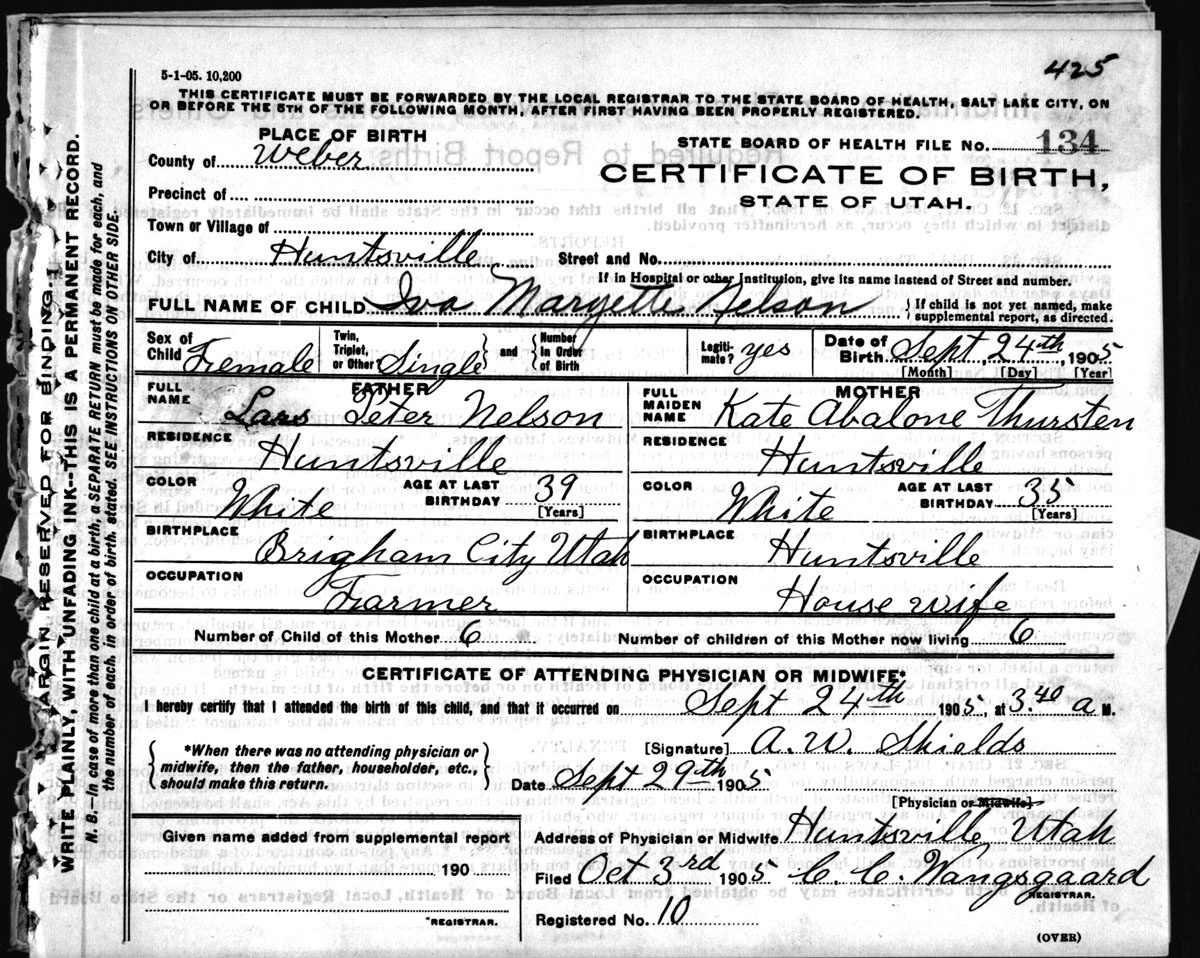 425
5-1-05. 10,200
THIS CERTIFICATE MUST BE FORWARDED BY THE LOCAL REGISTRAR TO THE STATE BOARD OF HEALTH, SALT LAKE CITY, ON
OR BEFORE THE 5TH OF THE FOLLOWING MONTH, AFTER FIRST HAVING BEEN PROPERLY REGISTERED.
PLACE OF BIRTH
County of Weber
Precinct of
Town or Village of
City of Huntsville
STATE BOARD OF HEALTH FILE No. 134
CERTIFICATE OF BIRTH,
STATE OF UTAH.
Street and No.
If in Hospital or other Institution, give its name instead of Street and number.
FULL NAME OF CHILD Iva Margette Nelson
If child is not yet named, make
supplemental report, as directed.
Sex of Child Female
Twin, Triplet, or Other Single
and
Number In Order of Birth
Legiti-mate? yes
Date of Birth Sept 24th 1905
[Month] [Day] [Year]
FATHER
FULL NAME Lars Peter Nelson
RESIDENCE Huntsville
COLOR White
AGE AT LAST BIRTHDAY 39
[Years]
BIRTHPLACE Brigham City Utah
OCCUPATION Farmer
MOTHER
FULL MAIDEN NAME Kate Abalone Thursten
RESIDENCE Huntsville
COLOR White
AGE AT LAST BIRTHDAY 35
[Years]
BIRTHPLACE Huntsville
OCCUPATION House wife
Number of Child of this Mother 6
Number of children of this Mother now living 6
CERTIFICATE OF ATTENDING PHYSICIAN OR MIDWIFE:*
I hereby certify that I attended the birth of this child, and that it occurred on Sept 24th 1905, at 3.40 a M.
*When there was no attending physician or
midwife, then the father, householder, etc.,
should make this return.
[Signature] A. W. Shields
Date Sept 29th 1905
[Physician or Midwife]
Given name added from supplemental report
190
*REGISTRAR.
Address of Physician or Midwife Huntsville Utah
Filed Oct 3rd 1905 C. C. Wangsgaard
REGISTRAR.
Registered No. 10
(OVER)
MARGIN RESERVED FOR BINDING.
WRITE PLAINLY, WITH UNFADING INK--THIS IS A PERMANENT RECORD.
N. B.—In case of more than one child at a birth, a SEPARATE RETURN must be made for each, and
the number of each, in order of birth, stated. SEE INSTRUCTIONS ON OTHER SIDE.